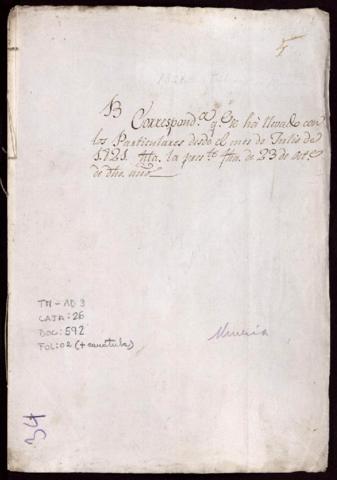 5
1821
B Correspond.ª q.e se ha llevado con
los Particulares desde el mes de Julio de
1821. hta. la pres.te fha. de 23 de Oct.e
de dho. año
TM-AD 3
CAJA: 26
DOC: 592
FOL: 02 (+ caratula)
34